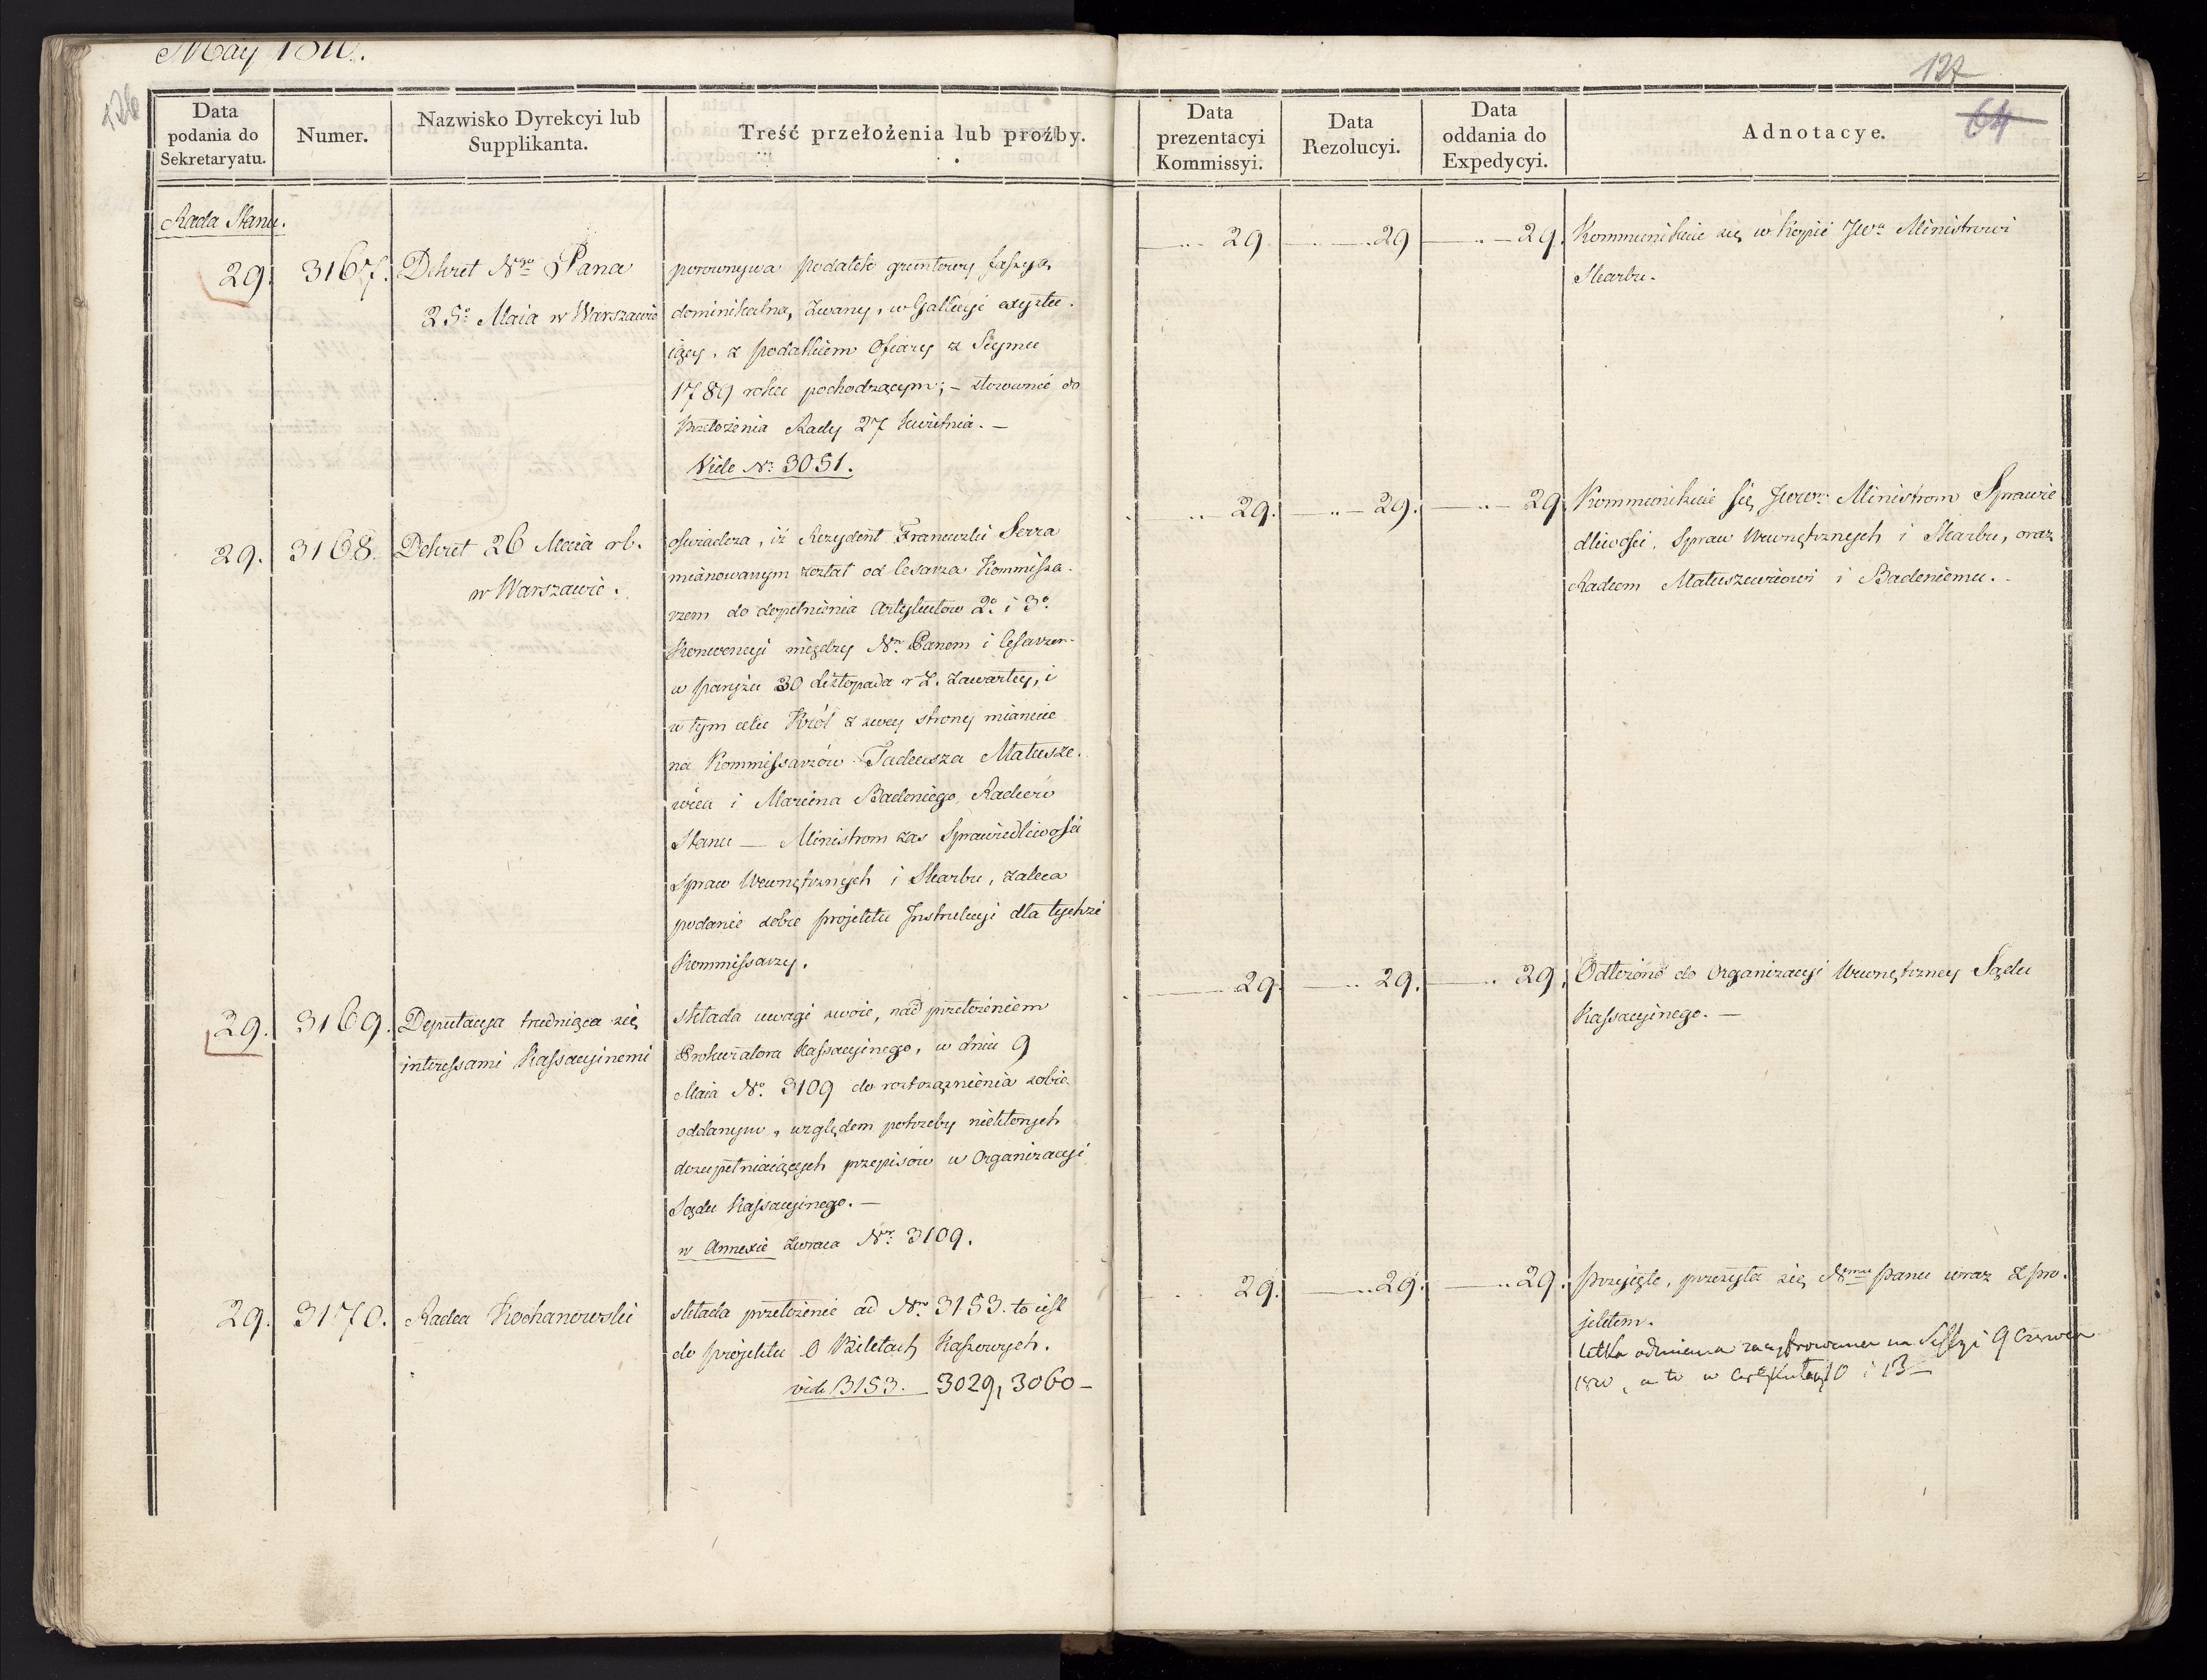 May 1810.
126
127
64
Data podania do Sekretaryatu.
Numer.
Nazwisko Dyrekcyi lub Supplikanta.
Treść przełożenia lub proźby.
Data prezentacyi Kommissyi.
Data Rezolucyi.
Data oddania do Expedycyi.
Adnotacye.
Rada Stanu.
29. 3167. Dekret Ngo Pana
25o Maia w Warszawie
porownywa podatek gruntowy fassyą
dominikalną zwany, w Gallicyi exystu-
iący, z podatkiem Ofiary z Seymu
1789 roku pochodzącym; – stosownie do
Przełożenia Rady 27 kwietnia. –
Vide No 3051.
29 29 29. Kommunikuie się w kopii JWu Ministrowi
Skarbu.
29. 3168. Dekret 26 Maia rb.
w Warszawie.
oświadcza, iż Rezydent Francuzki Serra
mianowanym został od Cesarza Kommissa-
rzem do dopełnienia Artykułów 2o i 3o
Konwencyi między Nm Panem i Cesarzem
w Paryżu 30 Listopada r z. zawartey, i
w tym celu Król z swey strony mianuie
na Kommissarzów Tadeusza Matusze-
wica i Marcina Badeniego, Radców
Stanu — Ministrom zas Sprawiedliwości
Spraw Wewnętrznych i Skarbu, zaleca
podanie sobie projektu Instrukcyi dla tychże
Kommissarzy.
29. 29. 29 Kommunikuie się JWW Ministrom Sprawie
dliwości, Spraw Wewnętrznych i Skarbu, oraz
Radcom Matuszewiczowi i Badeniemu.
29. 3169. Deputacya trudniąca się
interessami Kassacyinemi
składa uwagi swoie, nad przełożeniem
Prokuratora Kassacyinego, w dniu 9
Maia No. 3109 do roztrząśnienia sobie
oddanym, względem potrzeby niektorych
dozupełniaiących przepisów w Organizacyi
Sądu Kassacyinego. –
w Annexie zwraca Nr. 3109.
29. 29. 29. Odłożono do Organizacyi Wewnętrzney Sądu
Kassacyinego. –
29. 3170. Radca Kochanowski
składa przełożenie ad Nr. 3153. to iest
do projektu O Biletach Kassowych.
vide 3153. 3029, 3060 –
29. 29. 29. Przyięte, przesyła się Nmu Panu wraz z pro-
jektem.
odmiana na Sessyi 9 Czerwca
1810, a to w Artykułach 10 i 13